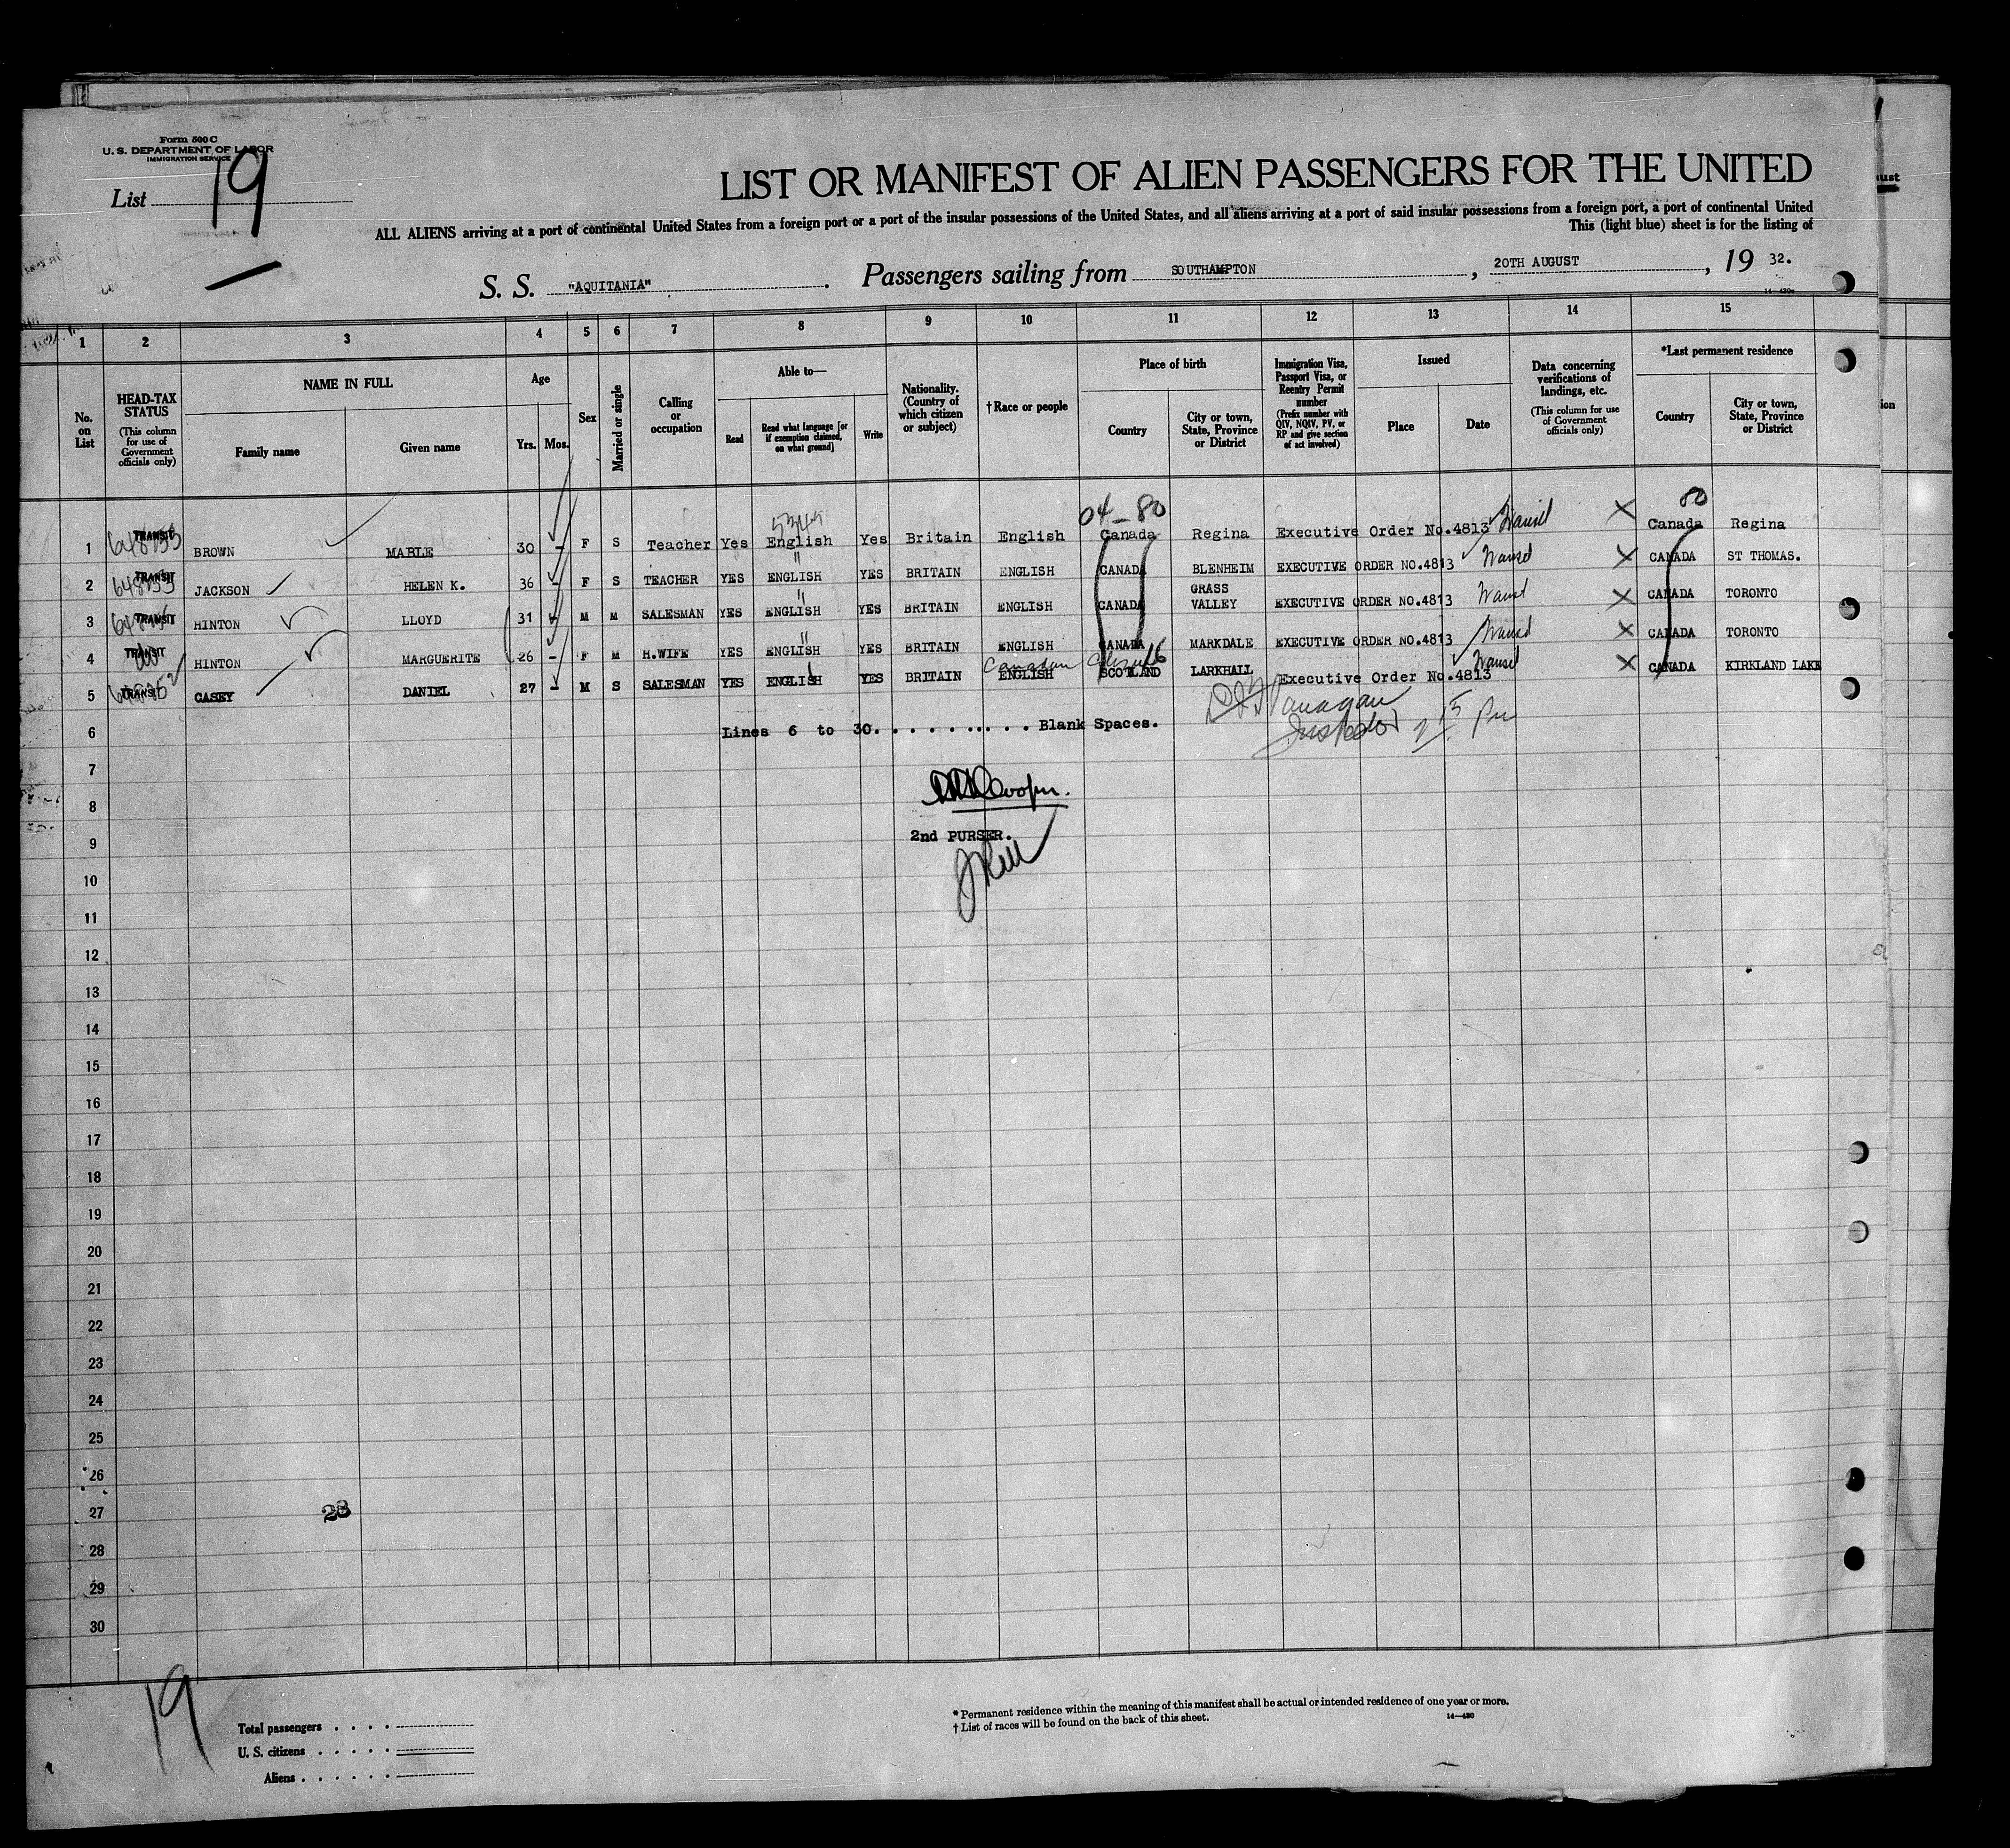 Form 500 C
U. S. DEPARTMENT OF LABOR
IMMIGRATION SERVICE
List 19
LIST OR MANIFEST OF ALIEN PASSENGERS FOR THE UNITED
ALL ALIENS arriving at a port of continental United States from a foreign port or a port of the insular possessions of the United States, and all aliens arriving at a port of said insular possessions from a foreign port, a port of continental United
This (light blue) sheet is for the listing of
S. S. "AQUITANIA" . Passengers sailing from SOUTHAMPTON , 20TH AUGUST , 19 32.
1 2 3 4 5 6 7 8 9 10 11 12 13 14 15
No. on List
HEAD-TAX STATUS (This column for use of Government officials only)
NAME IN FULL
Family name Given name
Age
Yrs. Mos.
Sex
Married or single
Calling or occupation
Able to—
Read Read what language [or if exemption claimed, on what ground] Write
Nationality. (Country of which citizen or subject)
†Race or people
Place of birth
Country City or town, State, Province or District
Immigration Visa, Passport Visa, or Reentry Permit number (Prefix number with QIV, NQIV, PV, or RP and give section of act involved)
Issued
Place Date
Data concerning verifications of landings, etc. (This column for use of Government officials only)
*Last permanent residence
Country City or town, State, Province or District
04-80 80
1 TRANSIT BROWN MABLE 30 - F S Teacher Yes English Yes Britain English Canada Regina Executive Order No.4813 Transit X Canada Regina
2 TRANSIT JACKSON HELEN K. 36 - F S TEACHER YES " ENGLISH YES BRITAIN ENGLISH CANADA BLENHEIM EXECUTIVE ORDER NO.4813 Transit X CANADA ST THOMAS.
3 TRANSIT HINTON LLOYD 31 - M M SALESMAN YES " ENGLISH YES BRITAIN ENGLISH CANADA GRASS VALLEY EXECUTIVE ORDER NO.4813 Transit X CANADA TORONTO
4 TRANSIT HINTON MARGUERITE 26 - F M H.WIFE YES " ENGLISH YES BRITAIN ENGLISH CANADA MARKDALE EXECUTIVE ORDER NO.4813 Transit X CANADA TORONTO
5 TRANSIT CASEY DANIEL 27 - M S SALESMAN YES ENGLISH YES BRITAIN Canadian ENGLISH SCOTLAND LARKHALL Executive Order No.4813 Transit X CANADA KIRKLAND LAKE
6 Lines 6 to 30. . . . . . . . . . . Blank Spaces.
Inspector
7
8 Cooper.
9 2nd PURSER.
10
11
12
13
14
15
16
17
18
19
20
21
22
23
24
25
26
27 23
28
29
30
19
Total passengers . . . .
U. S. citizens . . . . .
Aliens . . . . . .
* Permanent residence within the meaning of this manifest shall be actual or intended residence of one year or more.
† List of races will be found on the back of this sheet.
14—430